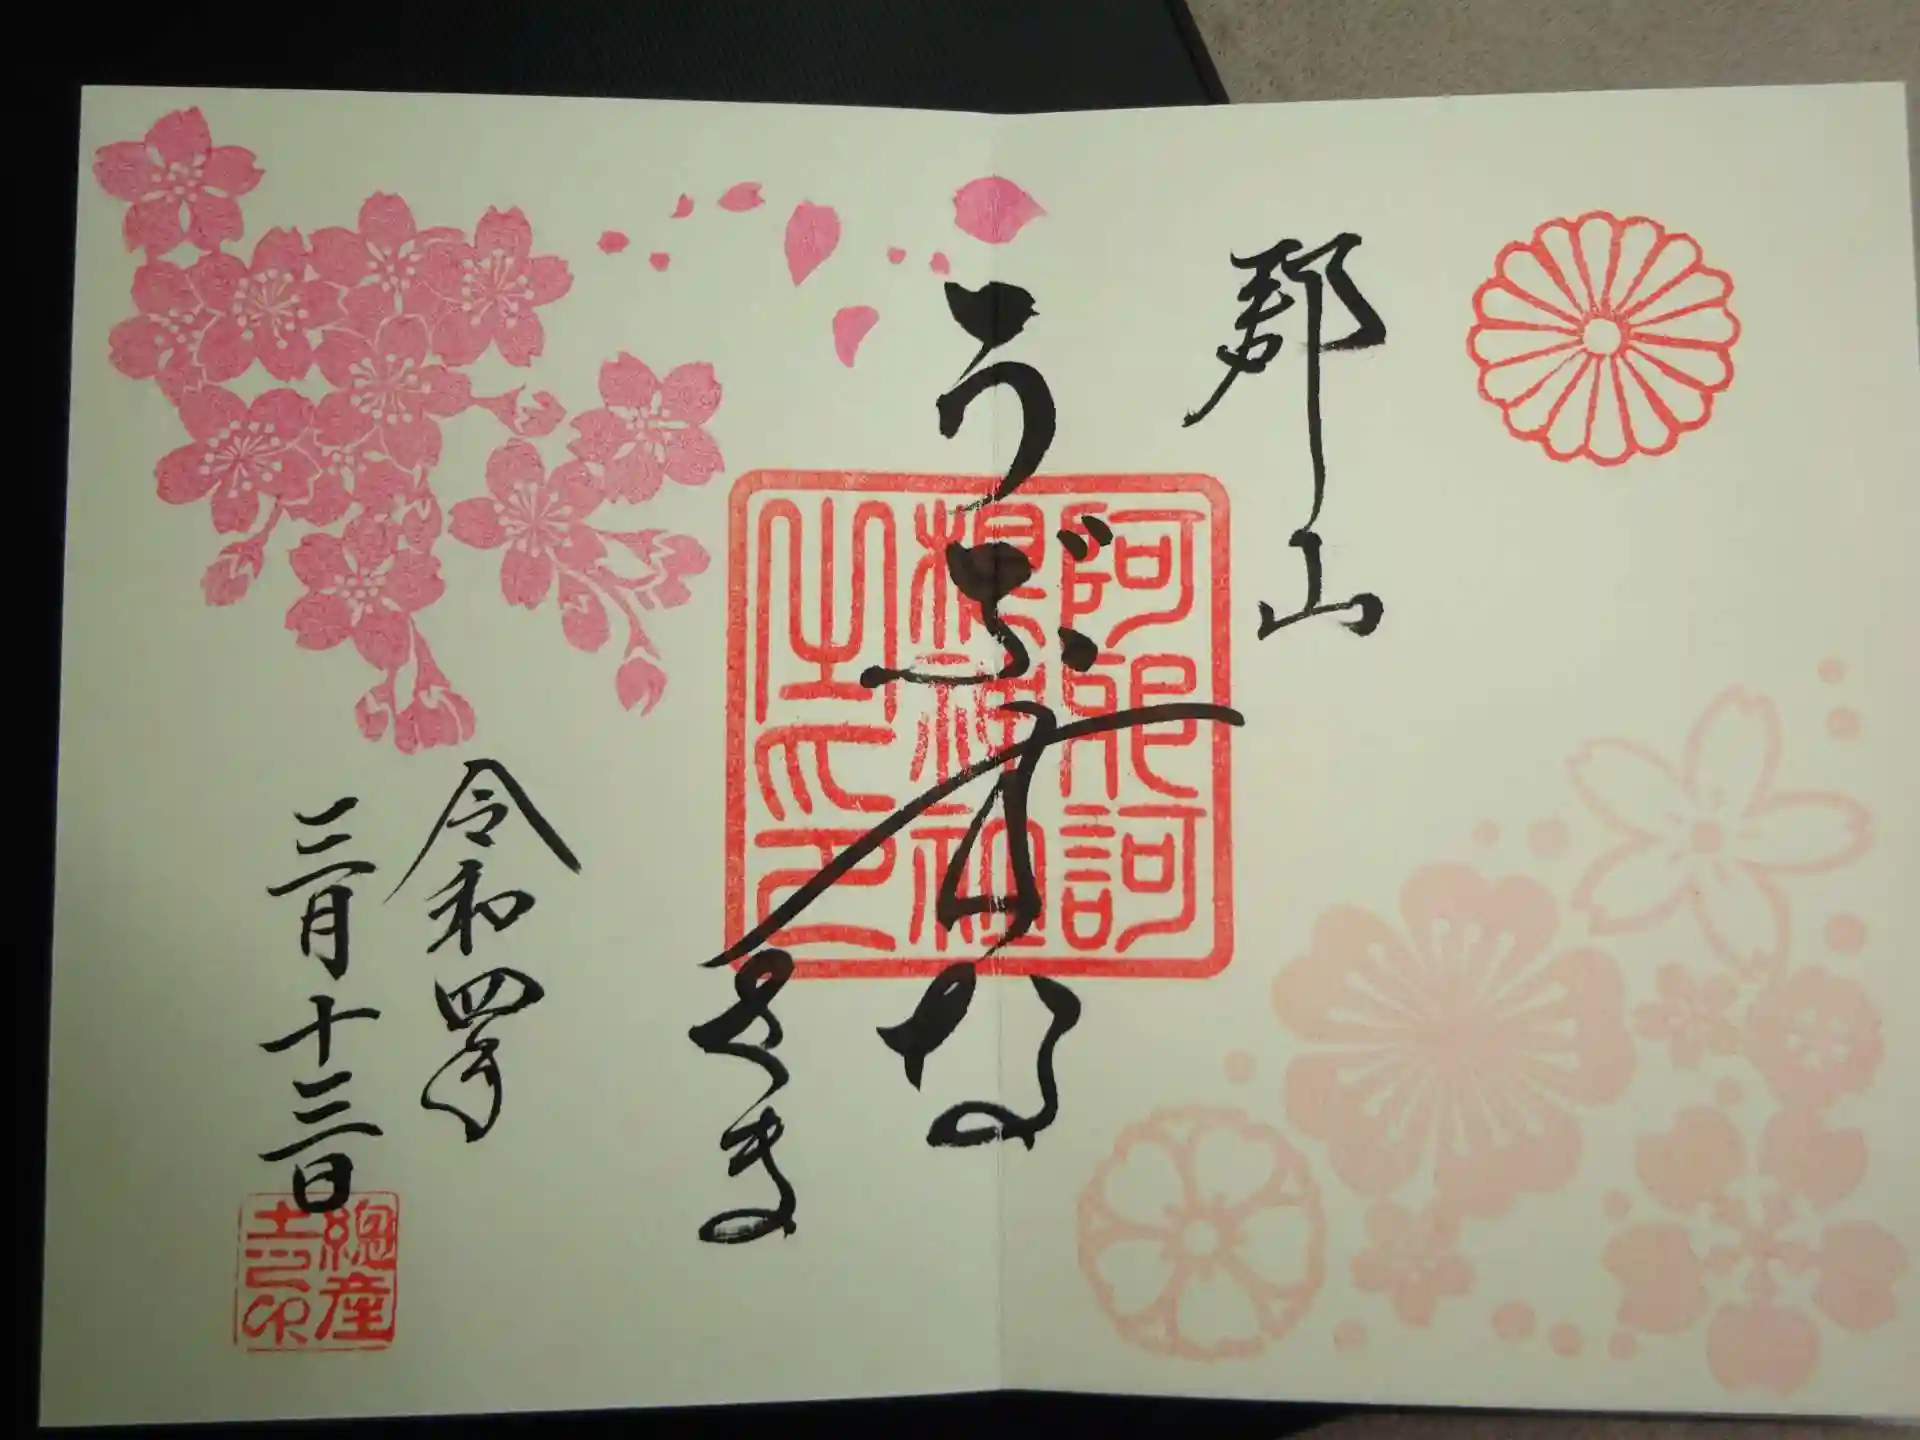 郡山
うぶすな
さま
阿邪訶
根神社
之印
令和四年
三月十三日
總産
土印